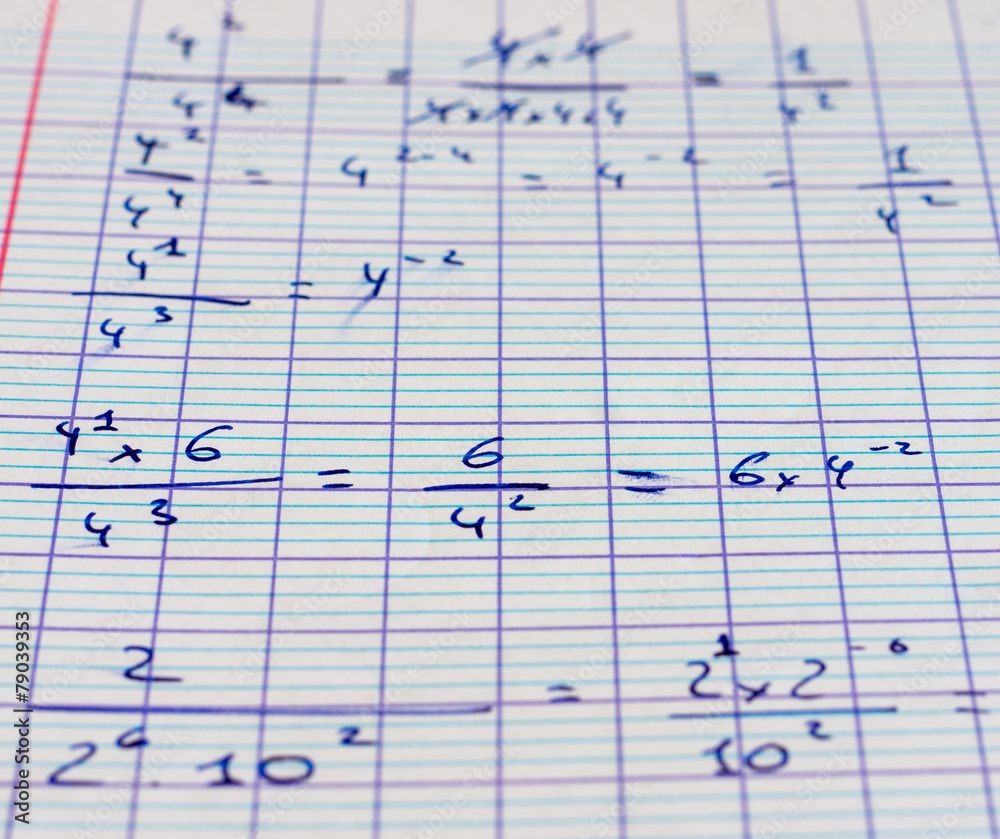 4² / 4⁴ = 4 × 4 / 4 × 4 × 4 × 4 = 1 / 4²
4² / 4⁴ = 4²⁻⁴ = 4⁻² = 1 / 4²
4¹ / 4³ = 4⁻²
4¹ × 6 / 4³ = 6 / 4² = 6 × 4⁻²
2 / 2⁶ · 10² = 2¹ × 2⁻⁶ / 10² =
Adobe Stock | #79039353